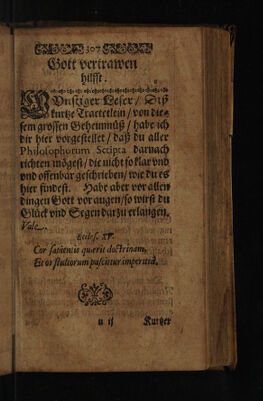 307
Gott vertrawen
hilfft.
GUnstiger Leser / Diß
kurtze Tractetlein / von die-
sem grossen Geheimnüß / habe ich
dir hier vorgestellet / daß du aller
Philosophorum Scripta darnach
richten mögest / die nicht so klar vnd
vnd offenbar geschrieben / wie du es
hier findest. Habe aber vor allen
dingen Gott vor augen / so wirst du
Glück vnd Segen darzu erlangen.
Vale.
Eccles. XV.
Cor sapientis quærit doctrinam,
Et os stultorum pascitur imperitiâ.
u ij Kurtzer